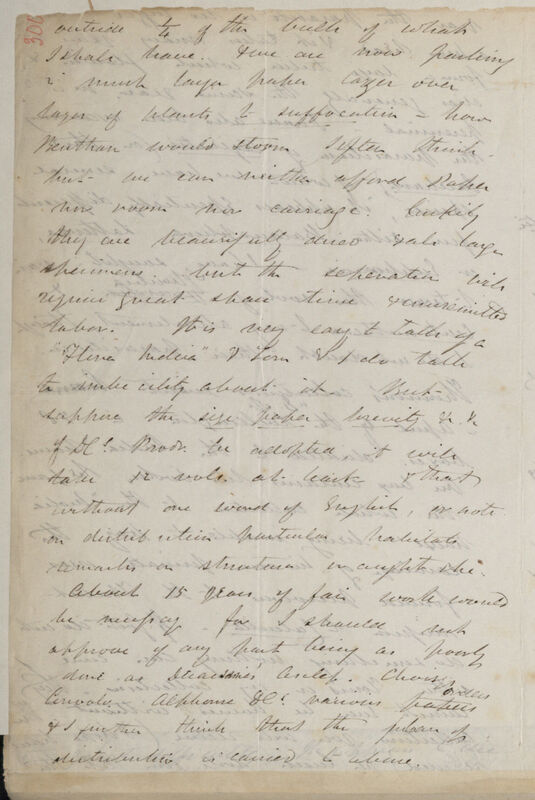 306
outside 1/4 of the bulk of what
I shall have & we are now packing
in much larger paper layer over
layer of plants to suffocation – how
Bentham would storm I often think
but we can neither afford Paper
nor room nor carriage luckily
they are beautifully dried & all large
specimens but the separation will
require great space time & unremitted
labor. It is very easy to talk of a
"Flora Indica" & Tom & I do talk
to imbecility about it. But
suppose the size paper brevity &c &c
of DC's Prodr. be adopted it will
take 12 vols. at least & that
without one word of English, or note
on distribution particular habitats
remarks on structure or aught else.
About 15 years of fair work would
be necessary for I should not
approve of any part being as poorly
done as Decaisne's Asclep. Choisy's
Convolv. Alphonse DC's various papers
& I further think that the plan of
distribution is carried to above